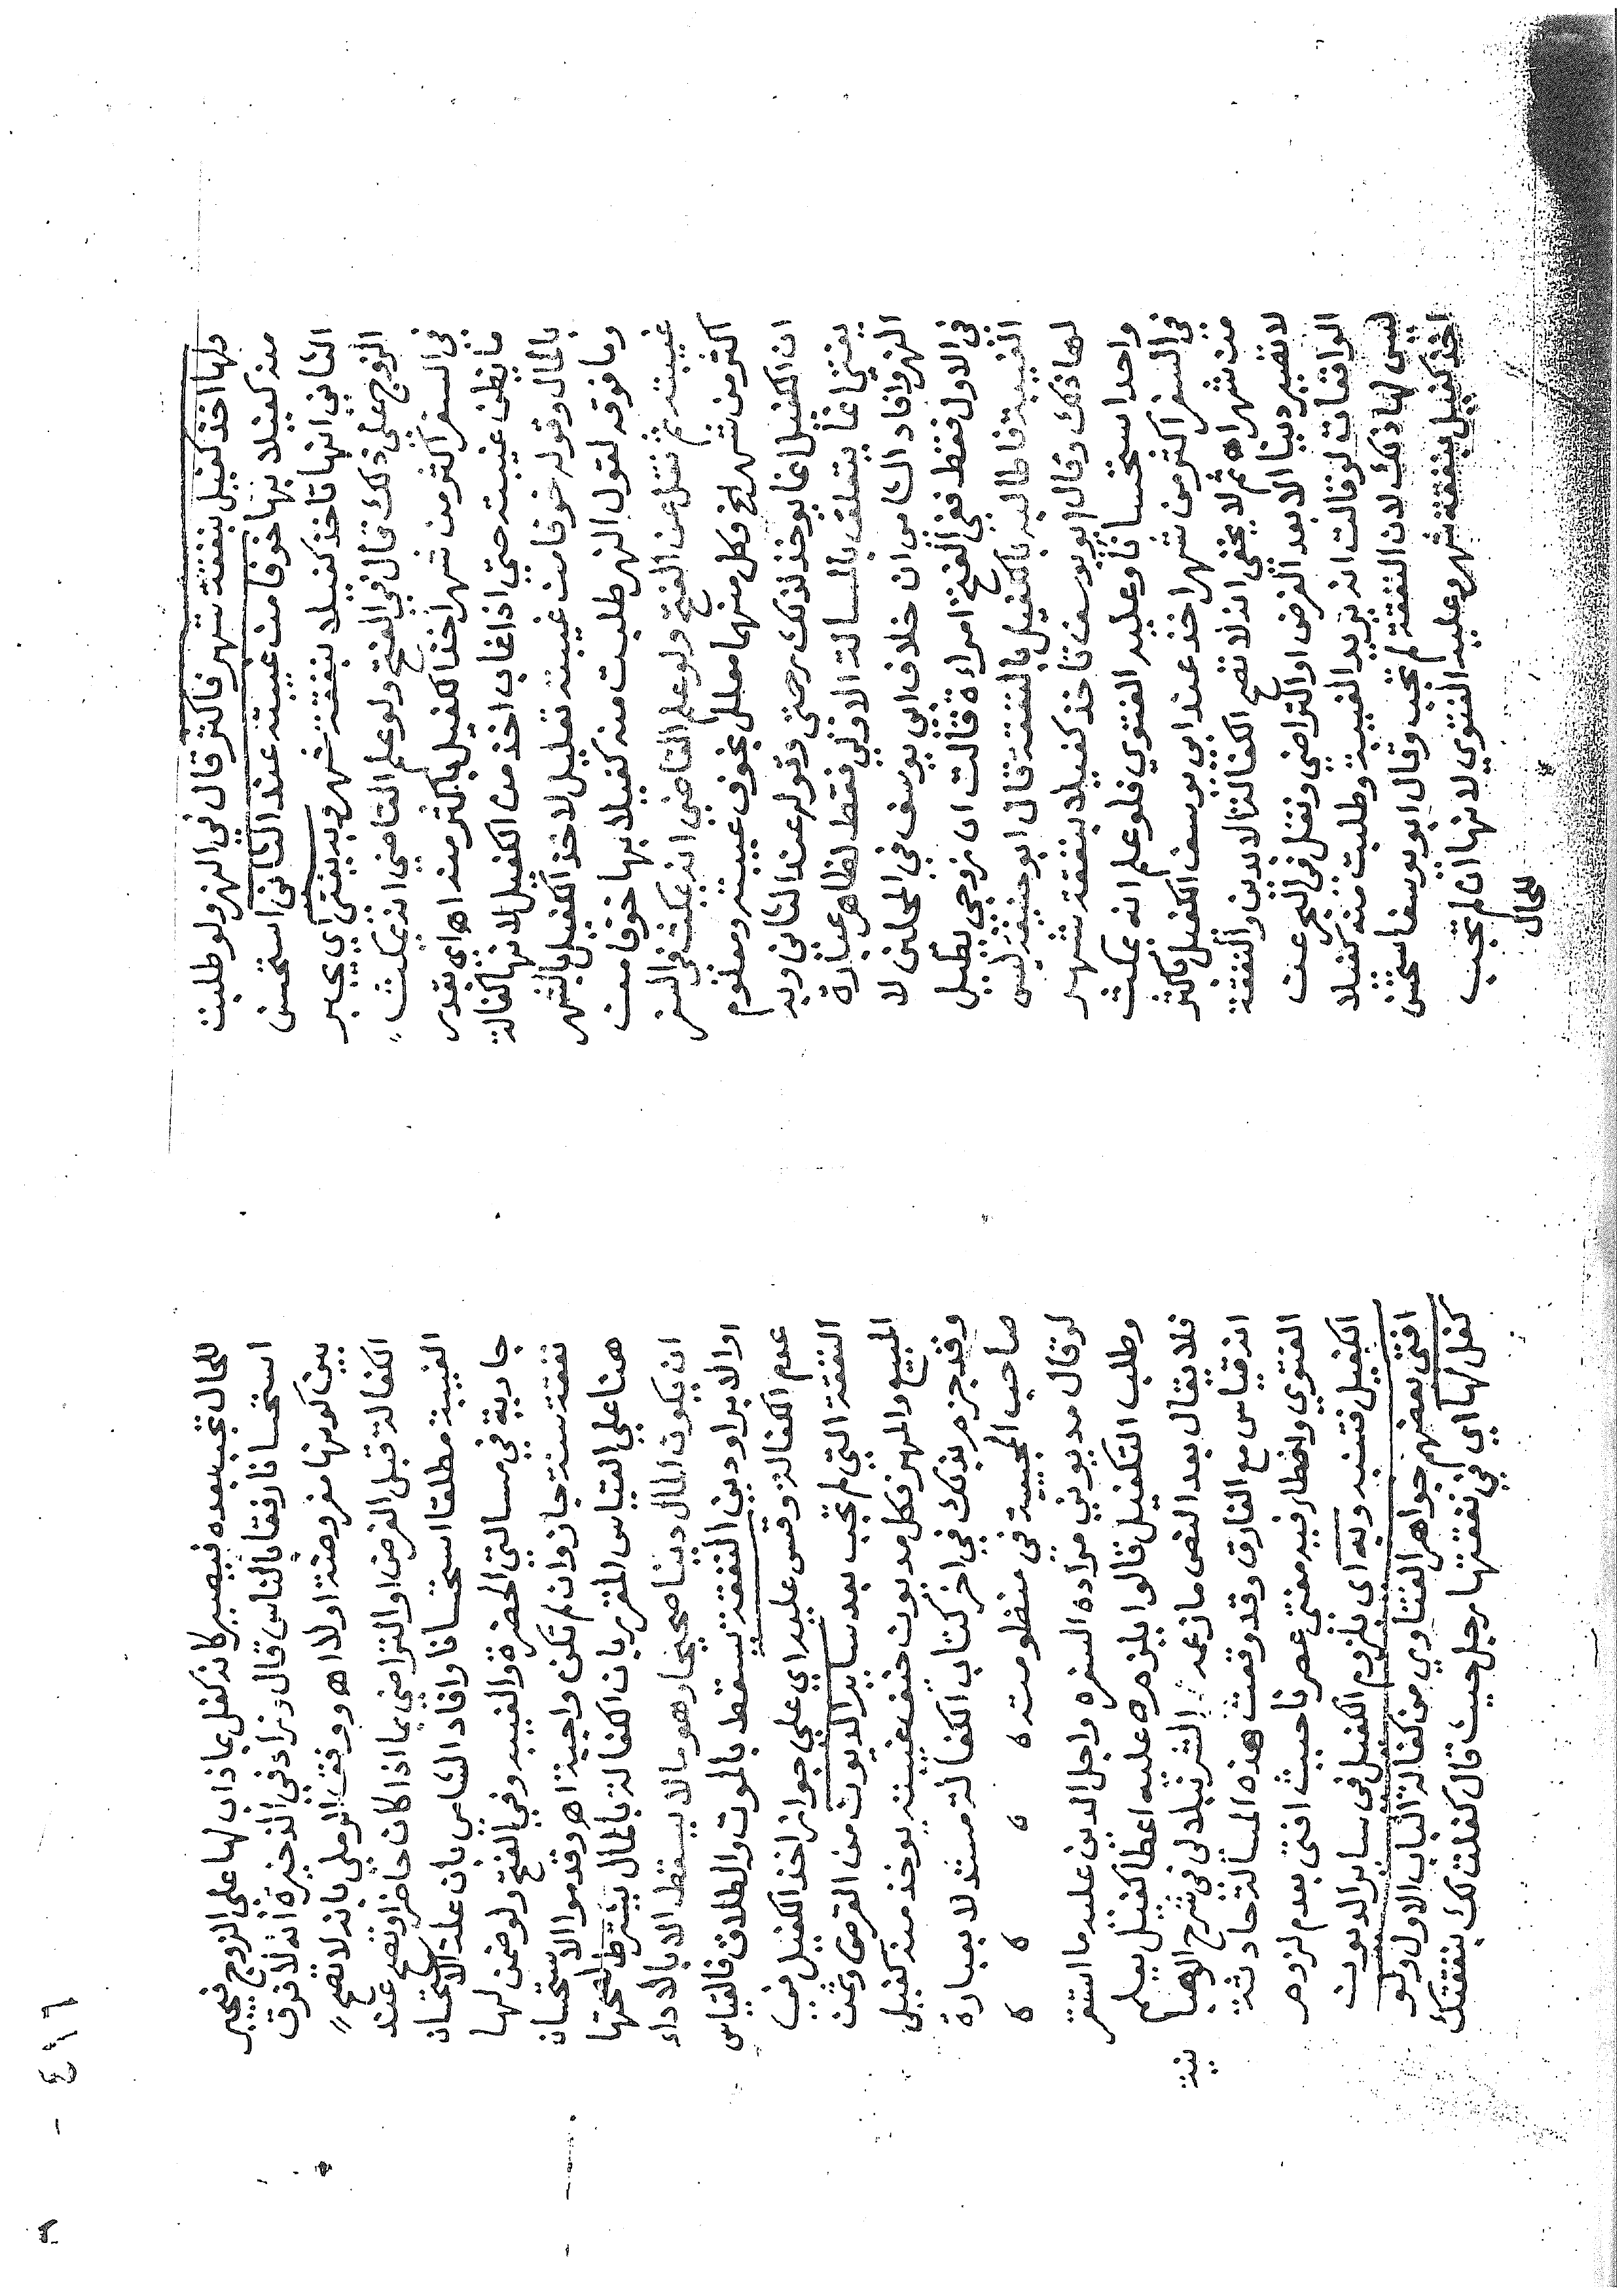 ولها اخذ كفيل بنفقة شهر فاكثر قال في النهر ولو طلبت
منه كفيلا بها خوفا من غيبته عند الثاني استحسن
الثاني انها تاخذ كفيلا بنفقة شهر وبه يفتى اي يجبر
الزوج على ذلك قال في الفتح ولو علم القاضي انه يمكث
في السفر اكثر من شهر اخذ الكفيل باكثر منه اه اي بقدر
ما يظن غيبته حتى اذا غاب اخذ من الكفيل لانها كفالة
بالمال وقوله خوفا من غيبته تعليل لاخذ الكفيل بالشهر
وما فوقه لقول النهر طلبت منه كفيلا بها خوفا من
غيبته ثم نقل عن الفتح ولو علم القاضي انه يمكث في السفر
اكثر من شهر الخ فكل منهما معلل بخوف غيبته ومعلوم
ان الكفيل انما يوخذ لذلك رحمتى وقوله عند الثاني وبه
يفتى انما يتعلق بالمسالة الاولى فقط لظاهر عبارة
النهر وافاد الشامى ان خلاف ابي يوسف في المحلين لا
في الاول فقط ففي الفتح امراءة قالت ان زوجي يطيل
الغيبة فاطالبه بالكفيل بالنفقة قال ابو حنيفة ليس
لها ذلك وقال ابو يوسف تاخذ كفيلا بنفقة شهر
واحد استحسانا وعليه الفتوي فلو علم انه يمكث
في السفر اكثر من شهر اخذ عند ابي يوسف الكفيل باكثر
من شهر اه ثم لا يخفى انه لا تصح الكفالة الا بدين والنفقة
لا تصير دينا الا بعد الفرض او التراضي ونقل في البحر عن
الواقعات لو قالت انه يريد الغيبة وطلبت منه كفيلا
ليس لها ذلك لان النفقة لم تجب وقال ابو يوسف استحسن
اخذ كفيل بنفقة شهر وعليه الفتوي لانها ان لم تجب
للحال
للحال تجب بعده فيصير كانه كفل بما ذاب لها على الزوج فيجبر
استحسانا رفقا بالناس قال وزاد في الذخيرة انه لا فرق
بين كونها مفروضة اولا اه ووفق الرملي بانه لا تصح
الكفالة قبل الفرض او التراضي بما اذا كان حاضرا وتصح عند
الغيبة مطلقا استحسانا وافاد الشامى بان علة الاستحسان
جارية في مسالتي الحضرة والغيبه وفي الفتح ولو ضمن لها
نفقة سنة جاز وان لم تكن واجبة اه وقدموا الاستحسان
هنا على القياس المقرر بان الكفالة بالمال يشترط لصحتها
ان يكون المال دينا صحيحا وهو ما لا يسقط الا بالاداء
او الابراء ودين النفقة يسقط بالموت والطلاق فالقياس
عدم الكفالة وقس عليه اي على جواز اخذ الكفيل في
النفقة التي لم تجب بعد ساير الديون من القرض وثمن
المبيع والمهر فكل مديون خيف غيبته يوخذ منه كفيل
وقد جزم بذلك في اخر كتاب الكفالة مستدلا بعبارة
صاحب المحيبة في منظومته ه ه ه ه
لو قال مديوني مراده السفر ه واجل الدين عليه ما استقر
وطلب التكفيل قالوا يلزم ه عليه اعطا كفيل يعلم
فلا يقال بعد النص ما زعمه الشرنبلالي في شرح الوهبا
نية
انه قياس مع الفارق وقد وقعت هذه المسالة حادثة
الفتوي واخطا فيه مفتي عصرنا حيث افتى بعدم لزوم
الكفيل فتنبه وبه اي بلزوم الكفيل في ساير الديون
افتى بعضهم جواهر الفتاوي من كفالة الباب الاول ولو
كفل لها اي في نفقتها رجل حيث قال كفلت لك بنفقتك
٤١٦